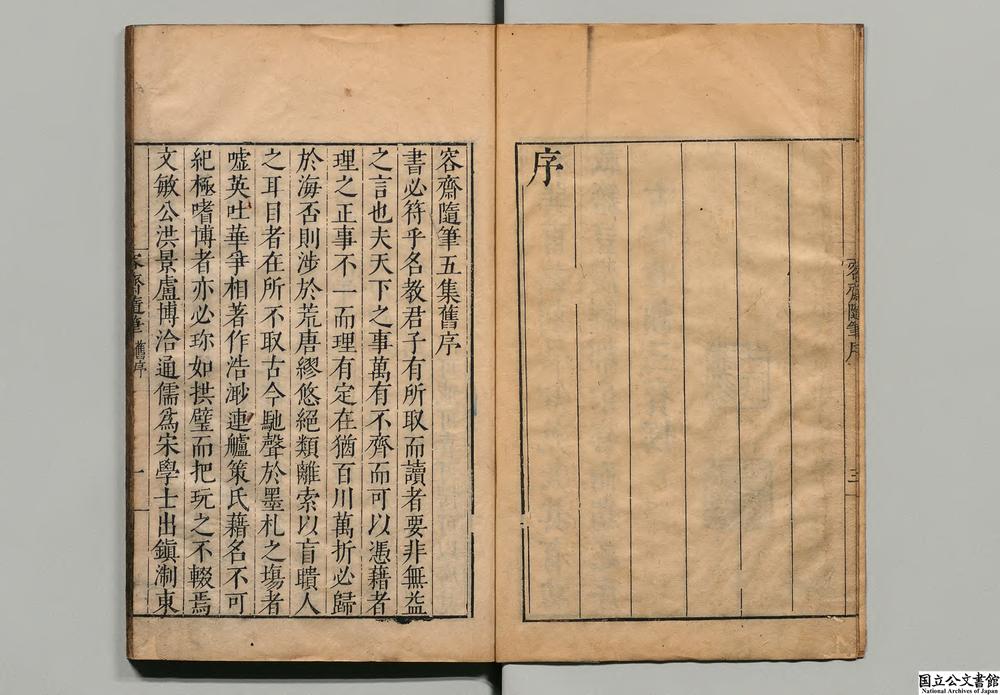 容齋隨筆序
三
序
容齋隨筆五集舊序
書必符乎名教君子有所取而讀者要非無益
之言也夫天下之事萬有不齊而可以憑藉者
理之正事不一而理有定在猶百川萬折必歸
於海否則涉於荒唐繆悠絕類離索以盲聵人
之耳目者在所不取古今馳聲於墨札之塲者
噓英吐華爭相著作浩渺連艫策氏藉名不可
紀極嗜博者亦必珎如拱璧而把玩之不輟焉
文敏公洪景盧博洽通儒爲宋學士出鎭淛東
容齋隨筆 舊序
一
国立公文書館
National Archives of Japan